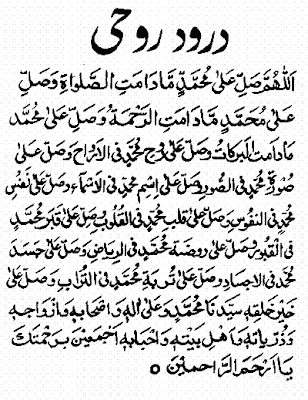 درود روحی
اَللّٰهُمَّ صَلِّ عَلٰى مُحَمَّدٍ مَّا دَامَتِ الصَّلٰوةِ وَصَلِّ
عَلٰى مُحَمَّدٍ مَّا دَامَتِ الرَّحْمَةُ وَصَلِّ عَلٰى مُحَمَّدٍ
مَّا دَامَتِ الْبَرَكَاتُ وَصَلِّ عَلٰى رُوْحِ مُحَمَّدٍ فِى الْاَرْوَاحِ وَصَلِّ عَلٰى
صُوْرَةِ مُحَمَّدٍ فِى الصُّوَرِ وَصَلِّ عَلٰى اِسْمِ مُحَمَّدٍ فِى الْاَسْمَآءِ وَصَلِّ عَلٰى نَفْسِ
مُحَمَّدٍ فِى النُّفُوْسِ وَصَلِّ عَلٰى قَلْبِ مُحَمَّدٍ فِى الْقُلُوْبِ وَصَلِّ عَلٰى قَبْرِ مُحَمَّدٍ
فِى الْقُبُوْرِ وَصَلِّ عَلٰى رَوْضَةِ مُحَمَّدٍ فِى الرِّيَاضِ وَصَلِّ عَلٰى جَسَدِ
مُحَمَّدٍ فِى الْاَجْسَادِ وَصَلِّ عَلٰى تُرْبَةِ مُحَمَّدٍ فِى التُّرَابِ وَصَلِّ عَلٰى
خَيْرِ خَلْقِهٖ سَيِّدِنَا مُحَمَّدٍ وَّعَلٰى اٰلِهٖ وَاَصْحَابِهٖ وَاَزْوَاجِهٖ
وَذُرِّيَّاتِهٖ وَاَهْلِ بَيْتِهٖ وَاَحْبَابِهٖ اَجْمَعِيْنَ بِرَحْمَتِكَ
يَا اَرْحَمَ الرَّاحِمِيْنَ ○